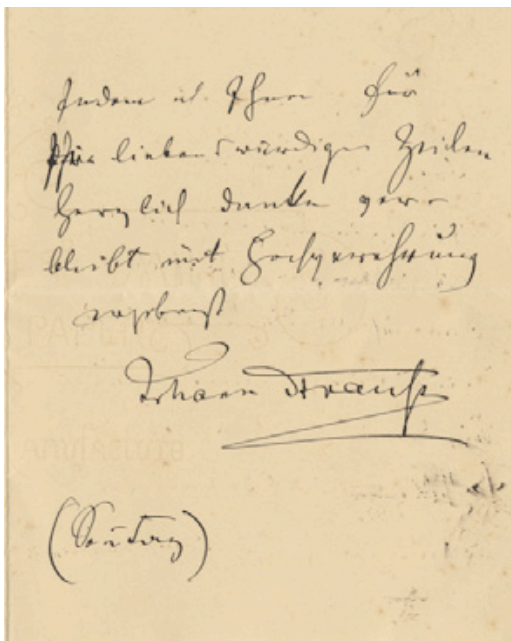 Indem ich Ihnen für
Ihre liebenswürdigen Zeilen
herzlich danke ver-
bleibt mit Hochverehrung
ergebenst
Johann Strauss
(Sonntag)